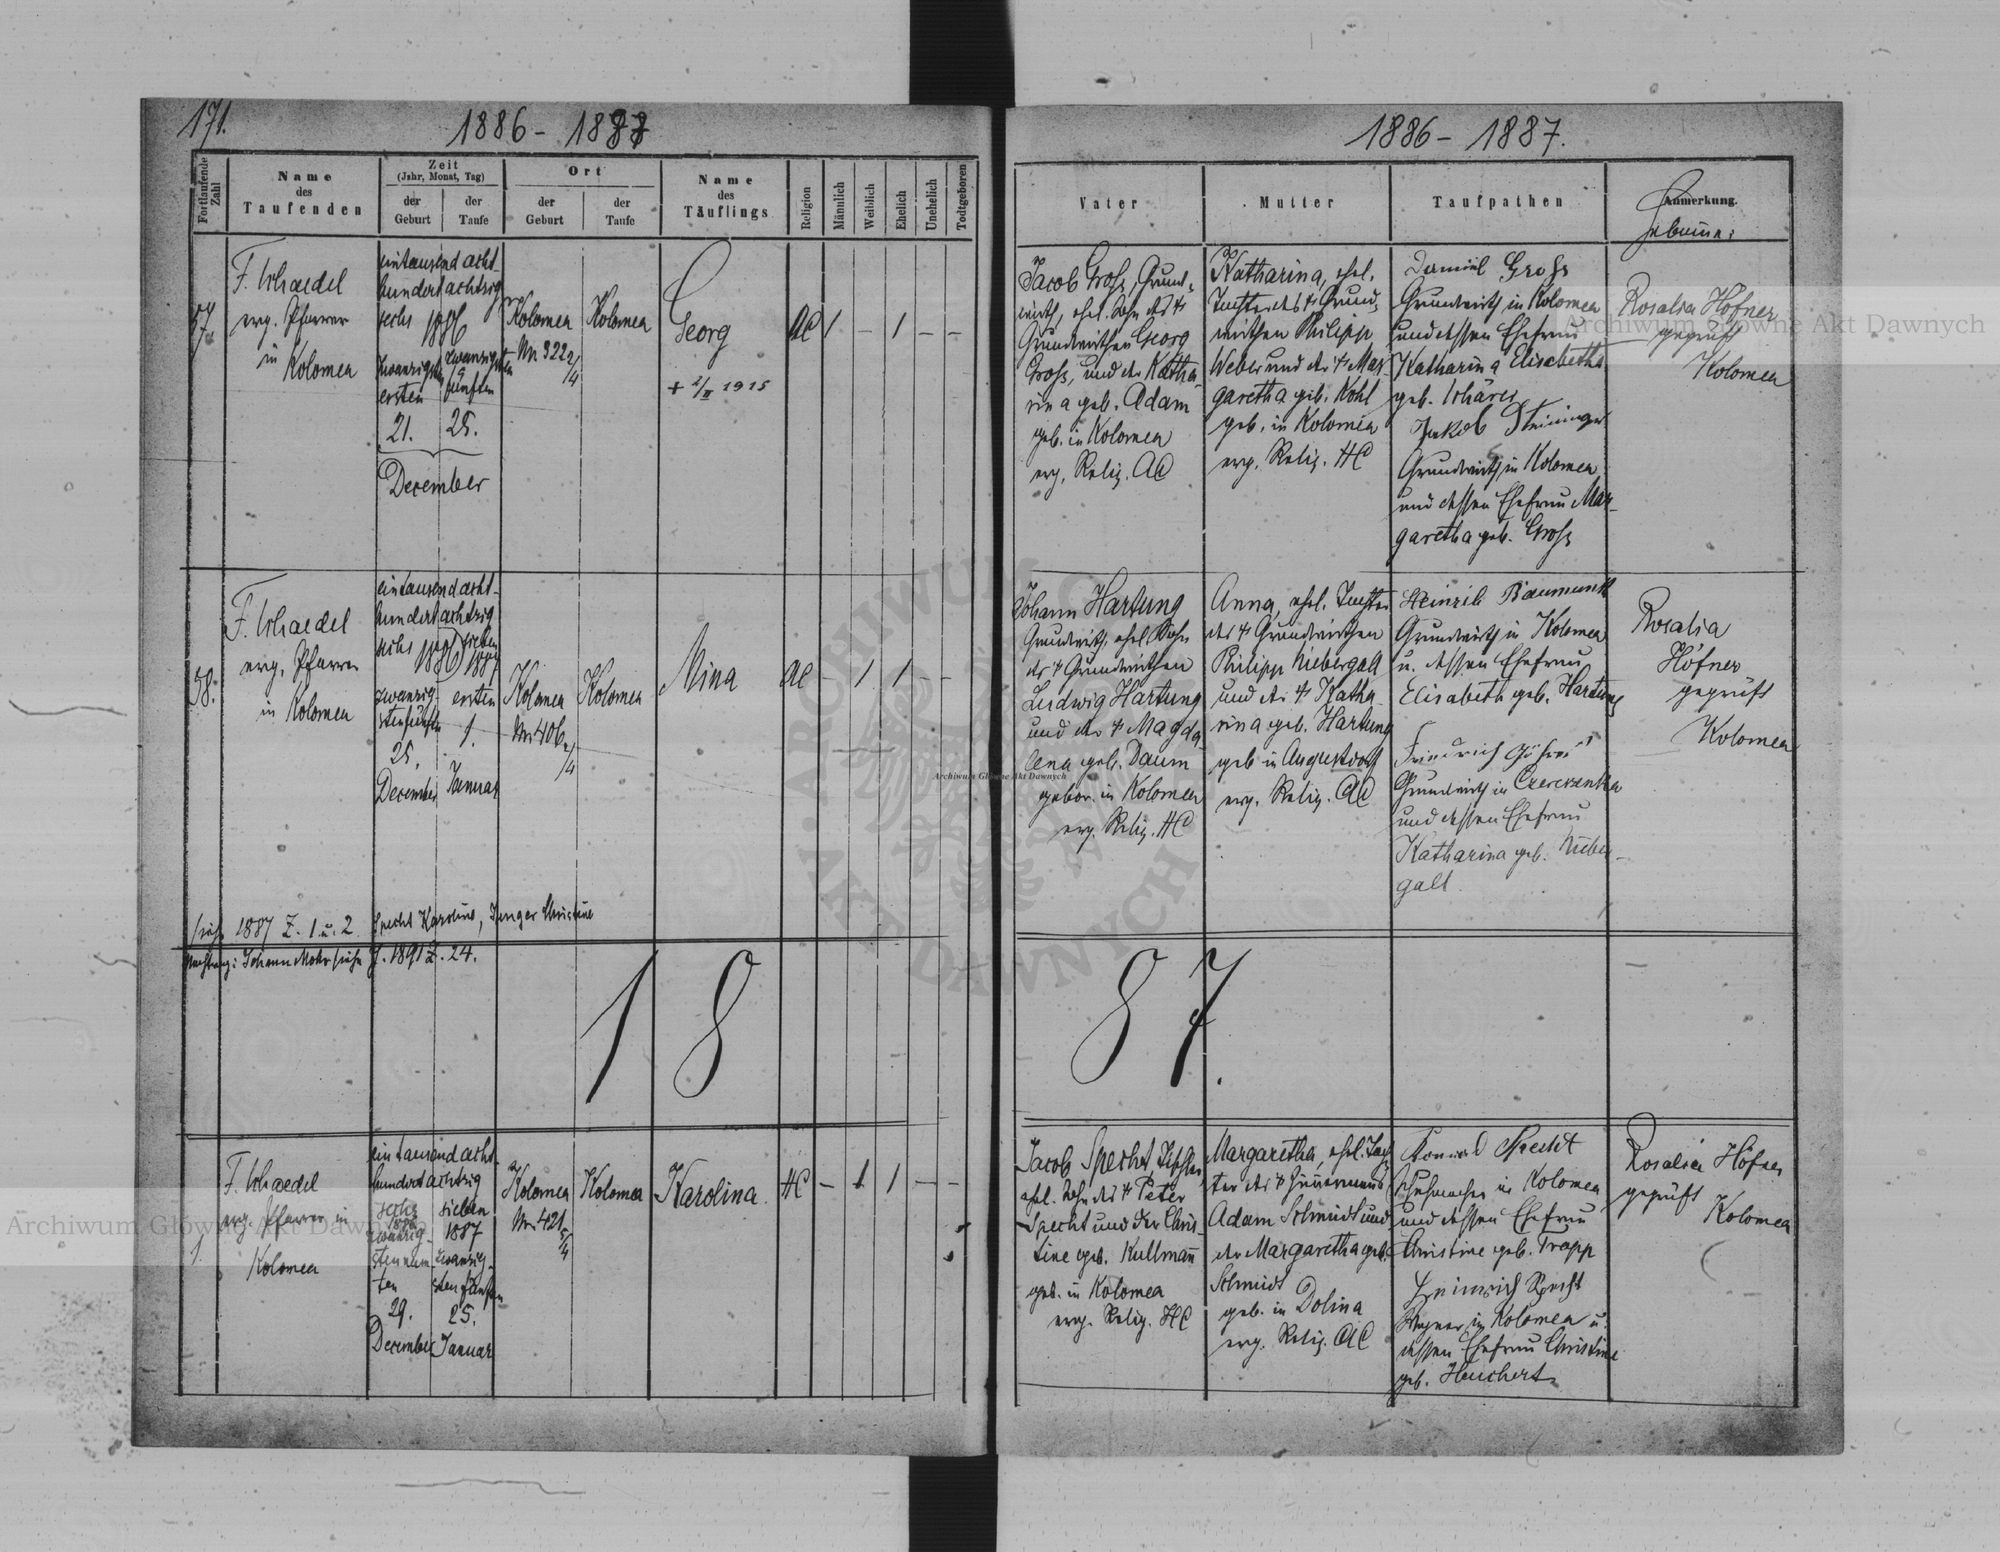 171.
1886 - 1887
1886 - 1887.
Fortlaufende Zahl
Name
des
Taufenden
Zeit
(Jahr, Monat, Tag)
der
Geburt
der
Taufe
Ort
der
Geburt
der
Taufe
Name
des
Täuflings
Religion
Männlich
Weiblich
Ehelich
Unehelich
Todtgeboren
Vater
Mutter
Taufpathen
Anmerkung.
57.
evg. Pfarrer
in
Kolomea
eintausend acht-
hundert achtzig
sechs 1886
zwanzigsten
ersten
zwanzigsten
fünften
21. 25.
December
Kolomea
Nr. 322
Kolomea
Georg
+ 2/II 1915
AC 1 – 1 – –
Jacob Gross, Grund-
wirth, ehel. Sohn des +
Grundwirthen Georg
Gross, und der Katha-
rina geb. Adam
geb. in Kolomea
evg. Relig. AC
Katharina, ehel.
Tochter des + Grund-
wirthen Philipp
Weber und der + Mar-
garetha geb. Kohl
geb. in Kolomea
evg. Relig. HC
Daniel Gross
Grundwirth in Kolomea
und dessen Ehefrau
Katharina Elisabetha
geb.
Jakob Steininger
Grundwirth in Kolomea
und dessen Ehefrau Mar-
garetha geb. Gross
Rosalia Höfner
geprüft
Kolomea
58.
evg. Pfarrer
in Kolomea
eintausend acht-
hundert achtzig
sechs 1886 sieben
1887
zwanzig-
sten fünften
25.
December
ersten
1.
Januar
Kolomea
Nr. 406
Kolomea
Mina
AC – 1 1 – –
Johann Hartung
Grundwirth, ehel. Sohn
des + Grundwirthen
Ludwig Hartung
und der + Magda-
lena geb. Daum
gebor. in Kolomea
evg. Relig. HC
Anna, ehel. Tochter
des + Grundwirthen
Philipp Niebergall
und der + Katha-
rina geb. Hartung
geb. in Augustdorf
evg. Relig. AC
Heinrich Baumunk
Grundwirth in Kolomea
u. dessen Ehefrau
Elisabeth geb. Hartung
Friedrich
Grundwirth in
und dessen Ehefrau
Katharina geb. Nieber-
gall
Rosalia
Höfner
geprüft
Kolomea
siehe 1887 Z. 1 u. 2 Specht Karoline, Christine
Nachtrag: Johann Mohr siehe J. 1891 Z. 24.
1887.
1.
evg. Pfarrer in
Kolomea
eintausend acht-
hundert achtzig
sechs
1886
zwanzig-
sten neun-
ten
29.
December
sieben
1887
zwanzig-
sten fünften
25.
Januar
Kolomea
Nr. 421
Kolomea
Karolina
HC – 1 1 – –
Jacob Specht,
ehel. Sohn des + Peter
Specht und der Chris-
tine geb. Kullmann
geb. in Kolomea
evg. Relig. HC
Margaretha, ehel. Toch-
ter des + Zimmermanns
Adam Schmidt und
der Margaretha geb.
Schmidt
geb. in Dolina
evg. Relig. AC
Konrad Specht
Schuhmacher in Kolomea
und dessen Ehefrau
Christine geb. Trapp
Heinrich Specht
Wagner in Kolomea u.
dessen Ehefrau Christine
geb. Heuchert
Rosalia Höfner
geprüft
Kolomea
Archiwum Główne Akt Dawnych
Archiwum Główne Akt Dawnych
Archiwum Główne Akt Dawnych